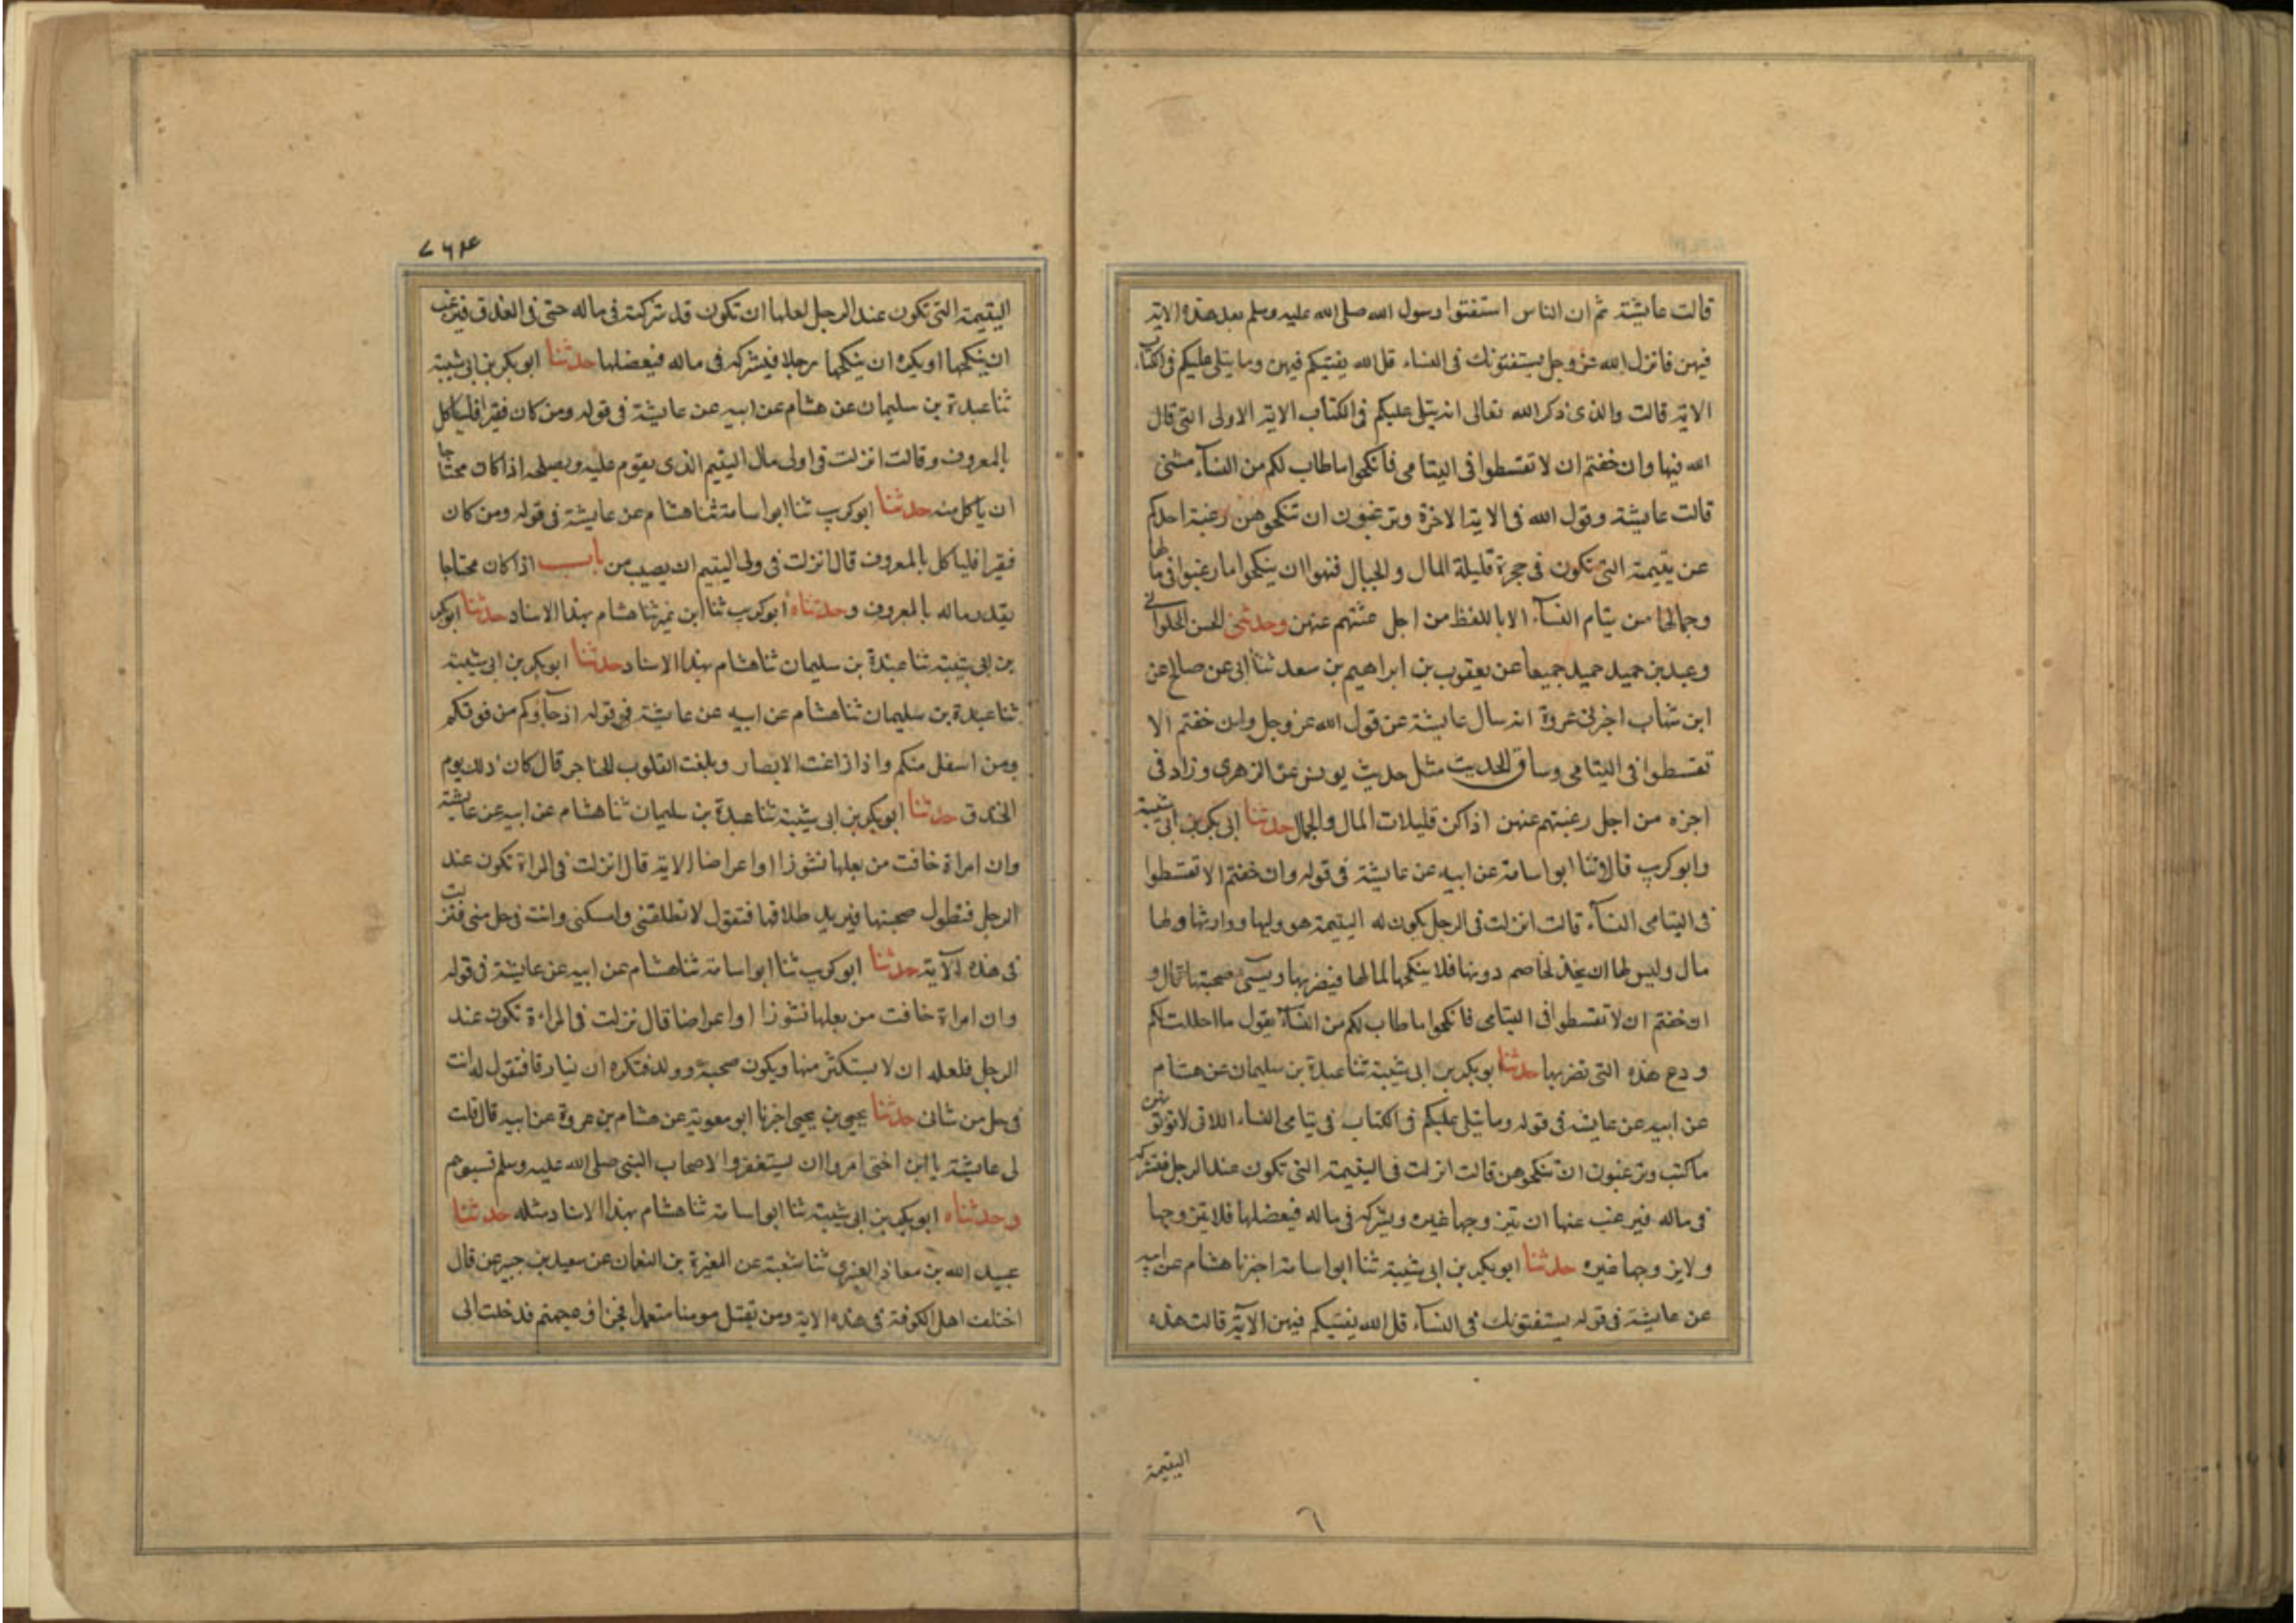 قالت عايشة ثم ان الناس استفتوا رسول الله صلى الله عليه وسلم بعد هذه الاية
فيهن فانزل الله عز وجل يستفتونك فى النساء قل الله يفتيكم فيهن وما يتلى عليكم فى الكتاب
الاية قالت والذى ذكر الله تعالى انه يتلى عليكم فى الكتاب الاية الاولى التى قال
الله فيها وان خفتم ان لا تقسطوا فى اليتامى فانكحوا ما طاب لكم من النسآء مثنى
قالت عايشة وقول الله فى الاية الاخرة وترغبون ان تنكحوهن رغبة احدكم
عن يتيمة التى تكون فى حجرة قليلة المال والجمال فنهوا ان ينكحوا ما رغبوا فى مالها
وجمالها من يتام النسآء الا باللفظ من اجل عنهن وحدثنى الحسن الحلوانى
وعبد بن حميد حميد جميعا عن يعقوب بن ابراهيم بن سعد ثنا ابى عن صالح عن
ابن شهاب اخبرنى عروة انه سال عايشة عن قول الله عز وجل وان خفتم الا
تقسطوا فى اليتامى وساق الحديث مثل حديث يونس عن الزهرى وزاد فى
اخره من اجل رغبتهم عنهن اذا كن قليلات المال والجمال حدثنا ابى بكر بن ابى شيبة
وابو كريب قالا ثنا ابو اسامة عن ابيه عن عايشة فى قوله وان خفتم الا تقسطوا
فى اليتامى النسآء قالت انزلت فى الرجل يكون له اليتيمة هو وليها ووارثها ولها
مال وليس لها ان يخاصم دونها فلا ينكحها لمالها فيضر بها ويسىء صحبتها قال و
ان خفتم ان لا تقسطوا فى اليتامى فانكحوا ما طاب لكم من النسآء يقول ما احللت لكم
ودع هذه التى تضر بها حدثنا ابو بكر بن ابى شيبة ثنا عبدة بن سليمان عن هشام
عن ابيه عن عايشه فى قوله وما يتلى عليكم فى الكتاب فى يتامى النساء اللاتى لا توتونهن
ما كتب وترغبون ان تنكحوهن قالت انزلت فى اليتيمة التى تكون عند الرجل فتشركه
فى ماله فيرغب عنها ان يتزوجها غيره ويشركه فى ماله فيعضلها فلا يتزوجها
ولا يزوجها غيره حدثنا ابو بكر بن ابى شيبة ثنا ابو اسامة اخبرنا هشام عن ابيه
عن عايشة فى قوله يستفتونك فى النسآء قل الله يفتيكم فيهن الآية قالت هذه
اليتيمة
٦
٧٦٤
اليتيمة التى تكون عند الرجل لعلها ان تكون قد شركته فى ماله حتى فى العذق فيرغب
ان ينكحها او يكره ان ينكحها رجلا فيشركه فى ماله فيعضلها حدثنا ابو بكر بن ابى شيبة
ثنا عبدة بن سليمان عن هشام عن ابيه عن عايشة فى قوله ومن كان فقيرا فلياكل
بالمعروف وقالت انزلت فى اولى مال اليتيم الذى يقوم عليه ويصلحه اذا كان محتاجا
ان ياكل منه حدثنا ابو كريب ثنا ابو اسامة ثنا هشام عن عايشة فى قوله ومن كان
فقيرا فلياكل بالمعروف قال انزلت فى ولى اليتيم ان يصيب من باب اذا كان محتاجا
بقدر ماله بالمعروف وحدثناه ابو كريب ثنا ابن نمير ثنا هشام بهذا الاسناد حدثنا ابو بكر
بن ابى شيبة ثنا عبدة بن سليمان ثنا هشام بهذا الاسناد حدثنا ابو بكر بن ابى شيبة
ثنا عبدة بن سليمان ثنا هشام عن ابيه عن عايشة فى قوله اذ جآؤكم من فوقكم
ومن اسفل منكم واذا زاغت الابصار وبلغت القلوب الحناجر قال كان ذلك يوم
الخندق حدثنا ابو بكر بن ابى شيبة ثنا عبدة بن سليمان ثنا هشام عن ابيه عن عايشة
وان امراة خافت من بعلها نشوزا او اعراضا الاية قال انزلت فى المراة تكون عند
الرجل فتطول صحبتها فيريد طلاقها فتقول لا تطلقنى وامسكنى وانت فى حل منى فنزلت
فى هذه الآية حدثنا ابو كريب ثنا ابو اسامة ثنا هشام عن ابيه عن عايشة فى قوله
وان امراة خافت من بعلها نشوزا او اعراضا قال نزلت فى المراءة تكون عند
الرجل فلعله ان لا يستكثر منها ويكون صحبة وولد فتكره ان يفارقها فتقول له انت
فى حل من شانى حدثنا يحيى بن يحيى اخبرنا ابو معوية عن هشام بن عروة عن ابيه قال قلت
لى عايشة يا ابن اختى امروا ان يستغفروا لاصحاب النبى صلى الله عليه وسلم فسبوهم
وحدثناه ابو بكر بن ابى شيبة ثنا ابو اسامة ثنا هشام بهذا الاسناد مثله حدثنا
عبيد الله بن معاذ العنبرى ثنا شعبة عن المغيرة بن النعمان عن سعيد بن جبير عن قال
اختلف اهل الكوفة فى هذه الاية ومن يقتل مومنا متعمدا فجزاؤه جهنم فدخلت الى